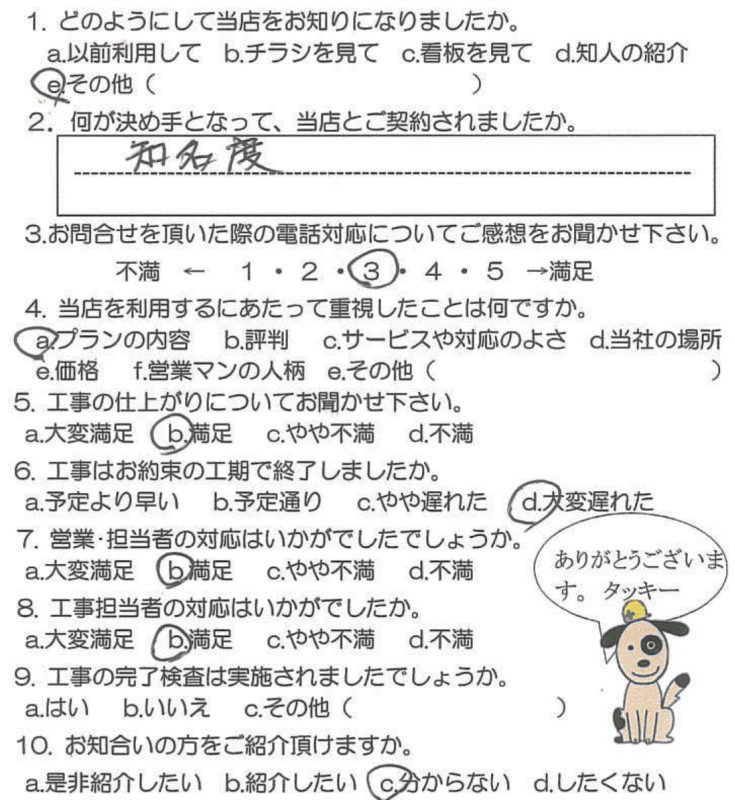 1. どのようにして当店をお知りになりましたか。
a.以前利用して b.チラシを見て c.看板を見て d.知人の紹介
e.その他（ ）
2. 何が決め手となって、当店とご契約されましたか。
知名度
3.お問合せを頂いた際の電話対応についてご感想をお聞かせ下さい。
不満 ← 1・2・3・4・5 →満足
4. 当店を利用するにあたって重視したことは何ですか。
a.プランの内容 b.評判 c.サービスや対応のよさ d.当社の場所
e.価格 f.営業マンの人柄 e.その他（ ）
5. 工事の仕上がりについてお聞かせ下さい。
a.大変満足 b.満足 c.やや不満 d.不満
6. 工事はお約束の工期で終了しましたか。
a.予定より早い b.予定通り c.やや遅れた d.大変遅れた
7. 営業･担当者の対応はいかがでしたでしょうか。
a.大変満足 b.満足 c.やや不満 d.不満
ありがとうございま
す。 タッキー
8. 工事担当者の対応はいかがでしたか。
a.大変満足 b.満足 c.やや不満 d.不満
9. 工事の完了検査は実施されましたでしょうか。
a.はい b.いいえ c.その他（ ）
10. お知合いの方をご紹介頂けますか。
a.是非紹介したい b.紹介したい c.分からない d.したくない